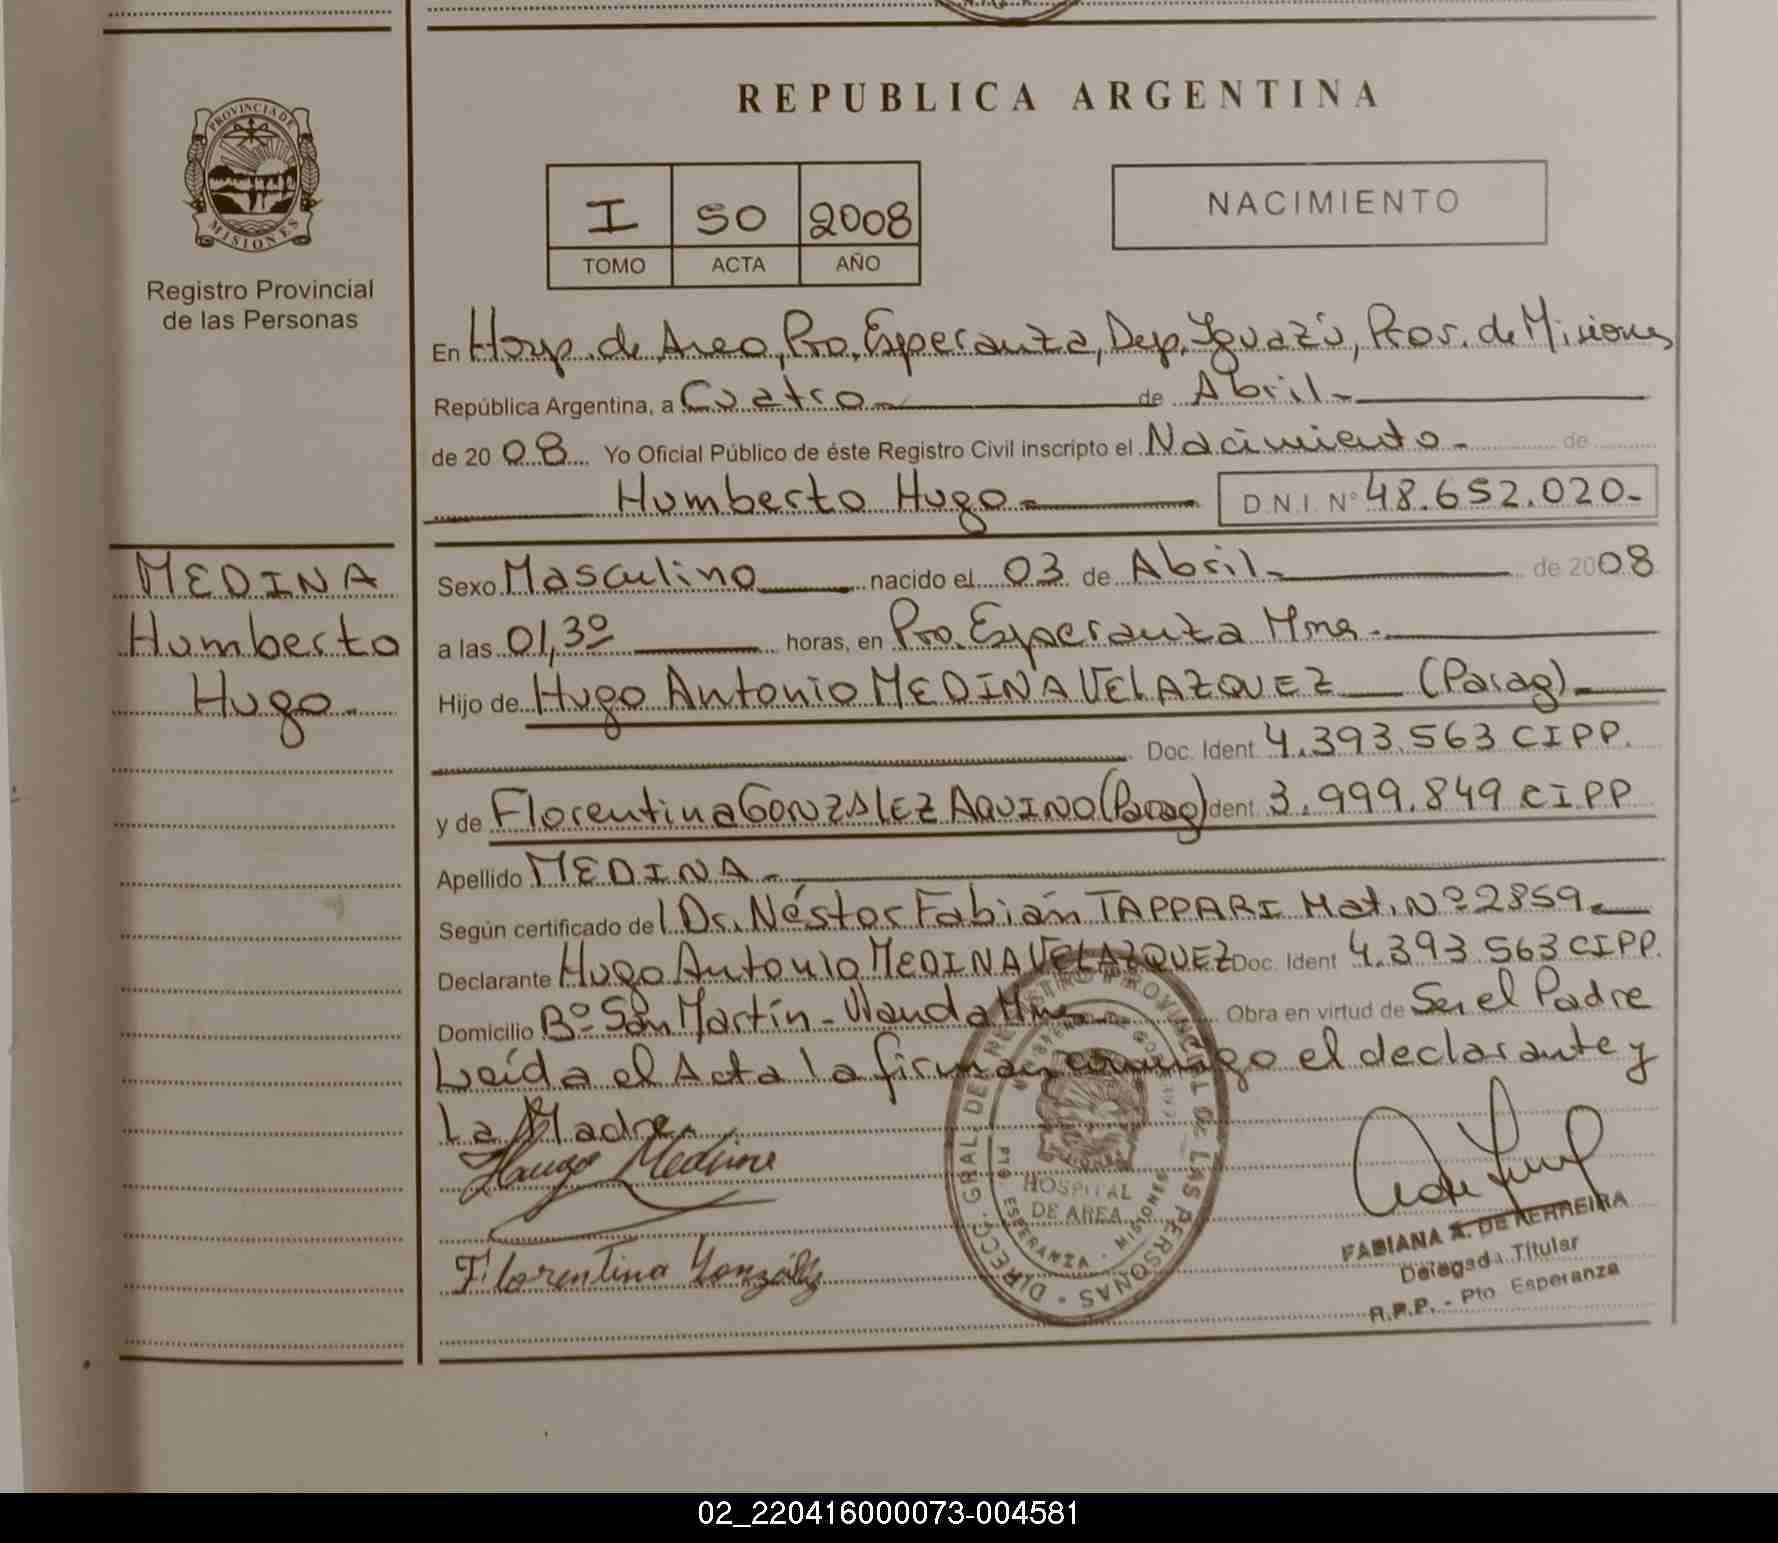 REPUBLICA ARGENTINA
PROVINCIA DE
MISIONES
Registro Provincial
de las Personas
I 50 2008
TOMO ACTA AÑO
NACIMIENTO
En Hosp. de Area, Pto. Esperanza, Dep. Iguazú, Prov. de Misiones
República Argentina, a Cuatro de Abril
de 2008 Yo Oficial Público de éste Registro Civil inscripto el Nacimiento de
Humberto Hugo D.N.I. Nº 48.652.020
MEDINA
Humberto
Hugo
Sexo Masculino nacido el 03 de Abril de 2008
a las 01,30 horas, en Pto. Esperanza Mnes.
Hijo de Hugo Antonio MEDINA VELAZQUEZ (Parag)
Doc. Ident. 4.393.563 CIPP.
y de Florentina GONZALEZ AQUINO (Parag) dent. 3.999.849 CIPP
Apellido MEDINA
Según certificado del Dr. Néstor Fabián TAPPARI Mat. Nº 2859
Declarante Hugo Antonio MEDINA VELAZQUEZ Doc. Ident 4.393.563 CIPP.
Domicilio Bº San Martín - Wanda Mnes Obra en virtud de Ser el Padre
Leída el Acta la firman conmigo el declarante y
La Madre
Hugo Medina
Florentina González
DIRECC. GRAL. DE REGISTRO PROVINCIAL DE LAS PERSONAS
HOSPITAL
DE AREA
ESPERANZA - MISIONES
FABIANA A. DE FERREIRA
Delegada Titular
R.P.P. - Pto. Esperanza
02_220416000073-004581